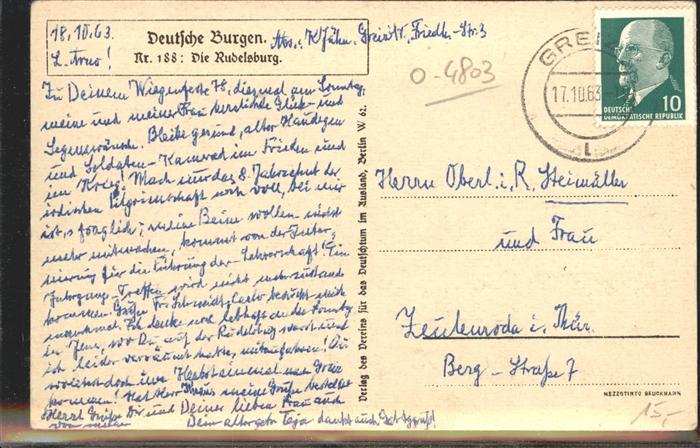 18.10.63
L. Arno!
Deutsche Burgen.
Nr. 188: Die Rudelsburg.
Abs.: K. Jahn, Greiz i. V., Friedh.-Str. 3
O-4803
GREIZ
17.10.63
DEUTSCHE
DEMOKRATISCHE REPUBLIK
10
Zu Deinem Wiegenfeste 78, diesmal am Sonntag,
meine und meiner Frau herzliche Glück- und
Segenswünsche. Bleibe gesund, alter Haudegen
und Soldaten-Kamerad im Frieden und
im Krieg! Mach nur das 8. Jahrzehnt der
irdischen Pilgrimschaft noch voll, bei mir
ist's fraglich; meine Beine wollen nicht
mehr mitmachen, kommt von der
für die Führung der Ein
Jahrgangs-Treffen wird nicht mehr zustande
kommen. Grüße
manchmal. Ich denke noch lebhaft an die Sonntag
in Jena, wo Du auf der Rudelsburg warst und
ich leider versäumt hatte, mitzufahren! Du
wolltest doch im Herbst einmal nach Greiz
kommen! Hat Herr meine Grüße bestellt?
Herzl. Grüße Dir und Deiner lieben Frau auch
von meiner
Dein alter
Verlag des Vereins für das Deutschtum im Ausland, Berlin W 62.
Herrn Oberl. i. R. Steinmüller
und Frau
Zeulenroda i. Thür.
Berg-Straße 7
MEZZOTINTO BRUCKMANN
15,-